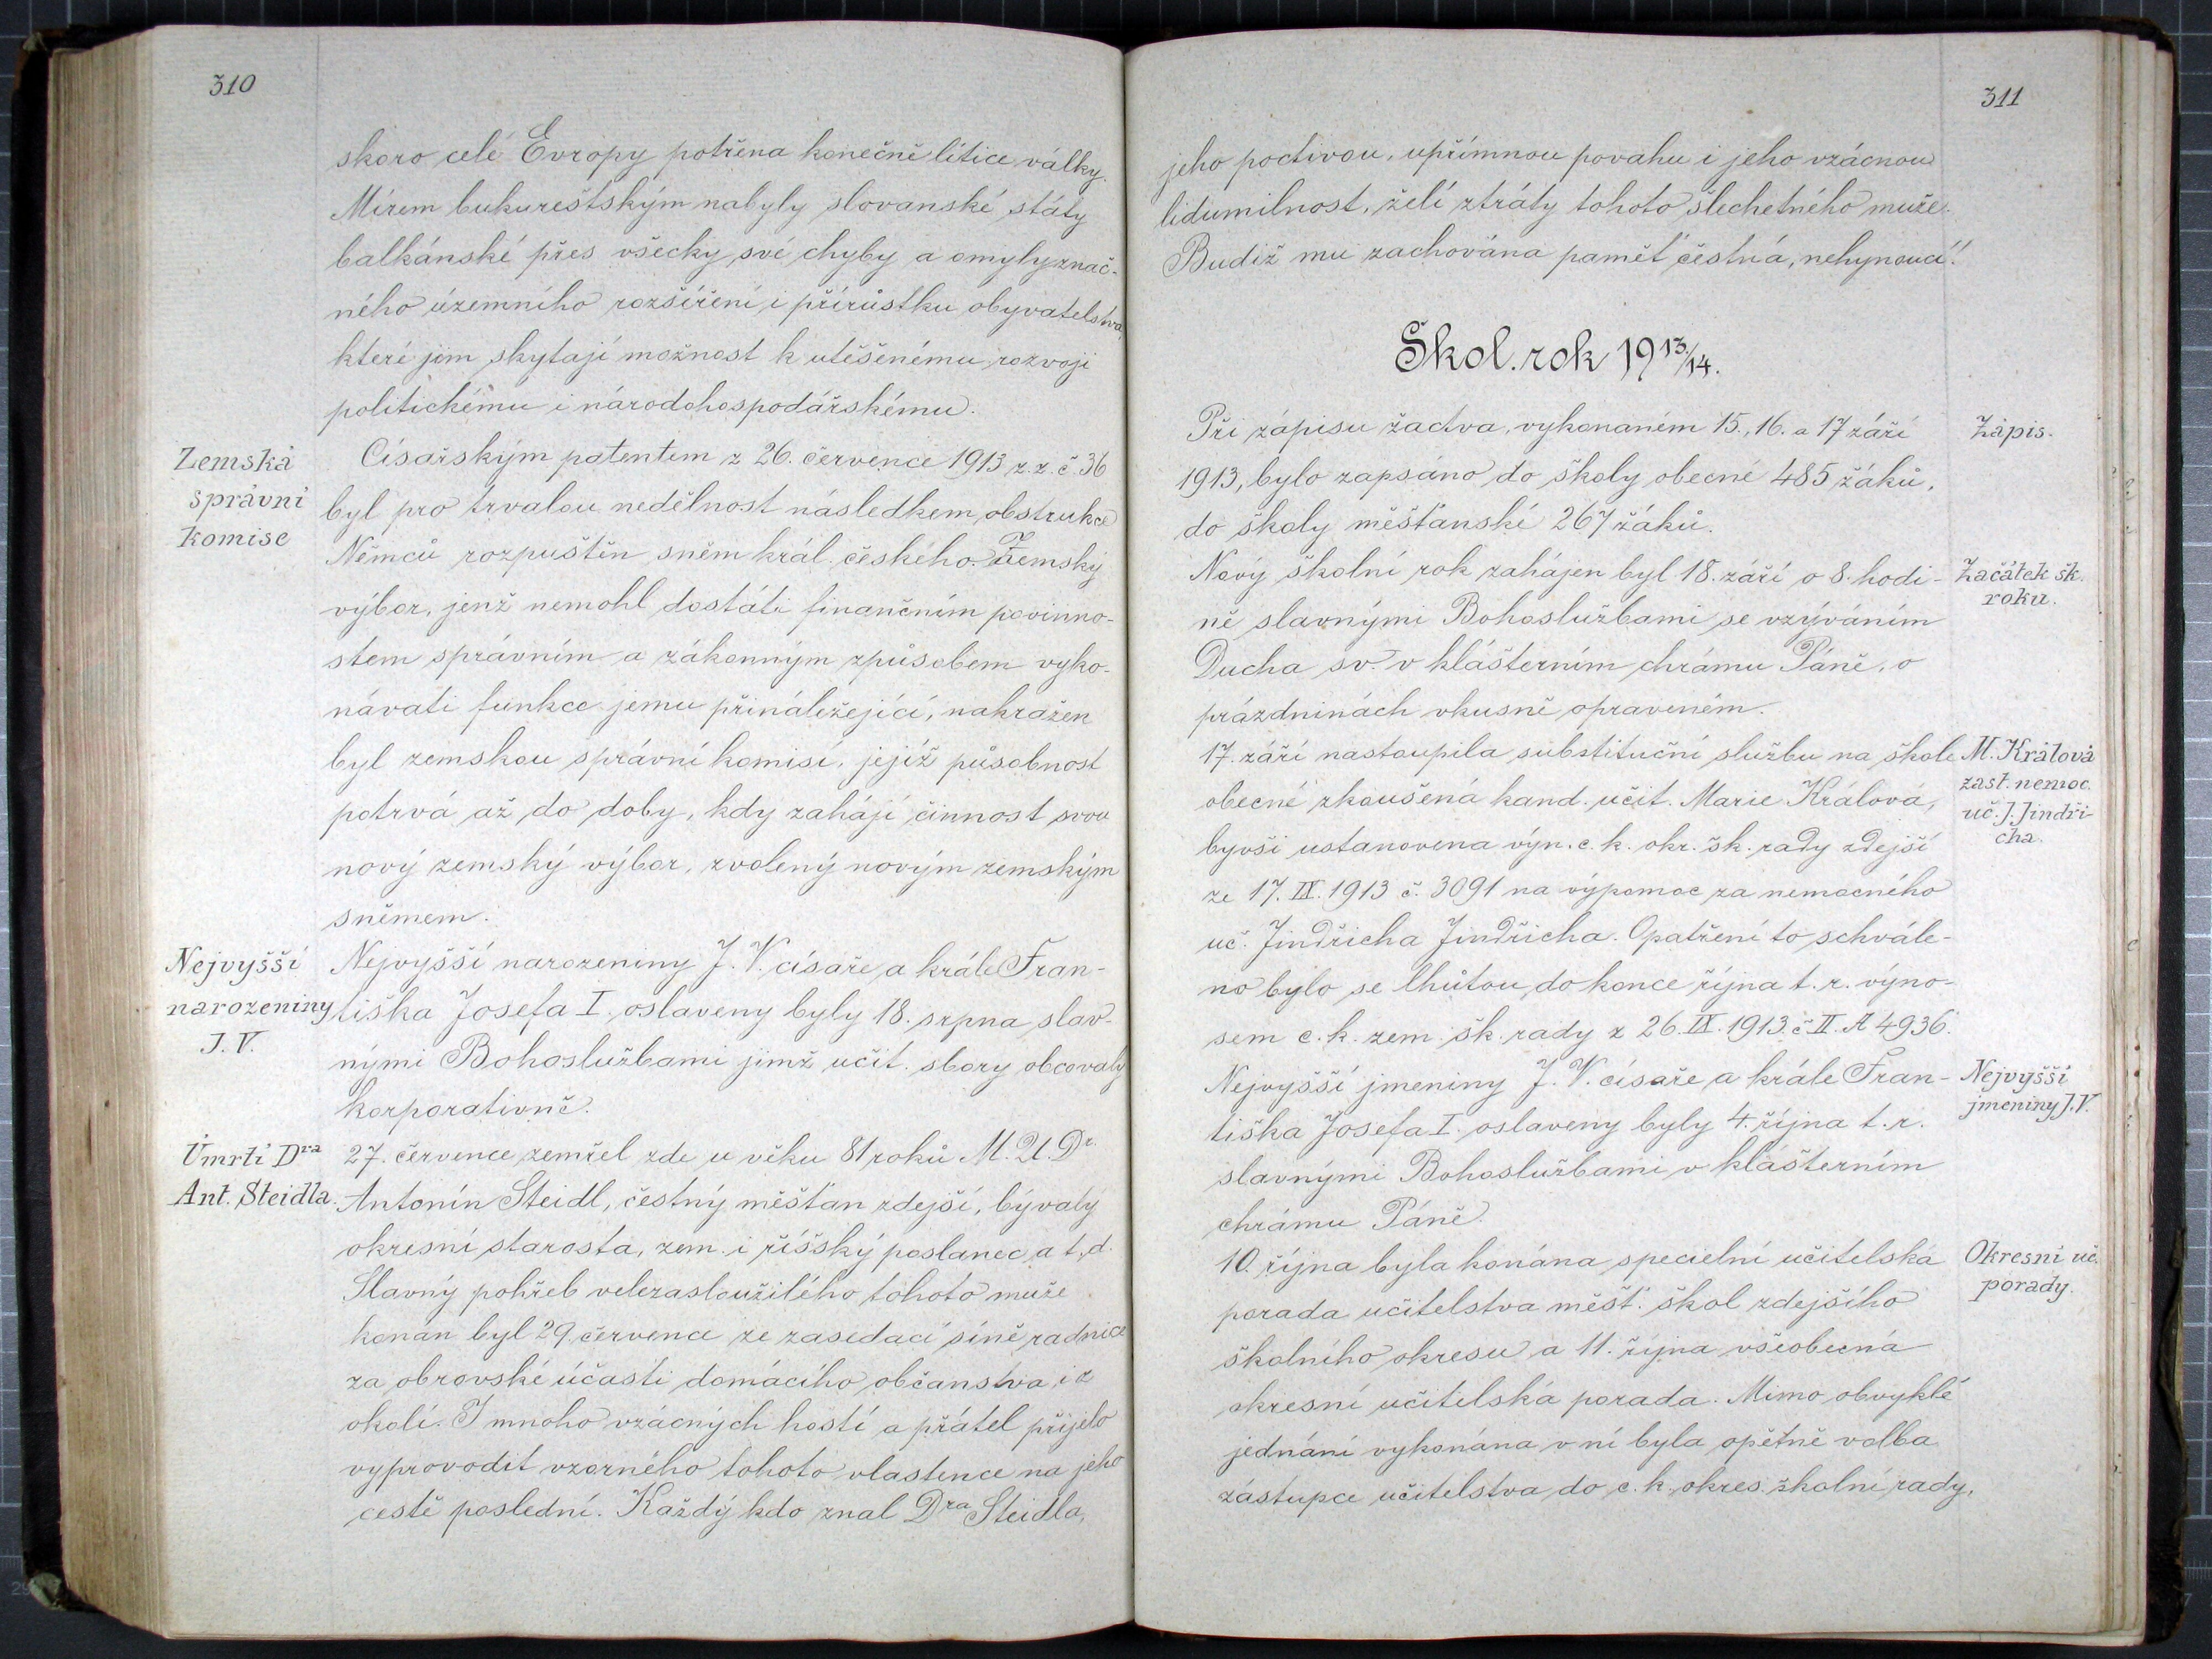 310
skoro celé Evropy potřena konečně lítice války.
Mírem bukureštským nabyly slovanské státy
balkánské přes všecky své chyby a omyly znač-
ného územního rozšíření i přírůstku obyvatelstva,
které jim skytají možnost k utěšenému rozvoji
politickému i národohospodářskému.
Zemská
správní
komise
Císařským patentem z 26. července 1913 z. z. č. 36
byl pro trvalou nedělnost následkem obstrukce
Němců rozpuštěn sněm král. českého. Zemský
výbor, jenž nemohl dostáti finančním povinno-
stem správním a zákonným způsobem vyko-
návati funkce jemu přináležející, nahražen
byl zemskou správní komisí, jejíž působnost
potrvá až do doby, kdy zahájí činnost svou
nový zemský výbor, zvolený novým zemským
sněmem.
Nejvyšší
narozeniny
J. V.
Nejvyšší narozeniny J. V. císaře a krále Fran-
tiška Josefa I. oslaveny byly 18. srpna slav-
nými Bohoslužbami jimž učit. sbory obcovaly
korporativně.
Úmrtí Dra
Ant. Steidla.
27. července zemřel zde u věku 81 roků M. U. Dr.
Antonín Steidl, čestný měšťan zdejší, bývalý
okresní starosta, zem. i říšský poslanec a t. d.
Slavný pohřeb velezasloužilého tohoto muže
konán byl 29. července ze zasedací síně radnice
za obrovské účasti domácího občanstva i z
okolí. I mnoho vzácných hostí a přátel přijelo
vyprovodit vzorného tohoto vlastence na jeho
cestě poslední. Každý kdo znal Dra Steidla,
311
jeho poctivou, upřímnou povahu i jeho vzácnou
lidumilnost, želí ztráty tohoto šlechetného muže.
Budiž mu zachována paměť čestná, nehynoucí!
Škol. rok 1913/14.
Při zápisu žactva, vykonaném 15., 16. a 17 září
1913, bylo zapsáno do školy obecné 485 žáků,
do školy měšťanské 267 žáků.
Zápis.
Nový školní rok zahájen byl 18. září o 8. hodi-
ně slavnými Bohoslužbami se vzýváním
Ducha sv. v klášterním chrámu Páně, o
prázdninách vkusně opraveném.
Začátek šk.
roku.
17. září nastoupila substituční službu na škole
obecné zkoušená kand. učit. Marie Králová,
byvši ustanovena výn. c. k. okr. šk. rady zdejší
ze 17. IX. 1913 č. 3091 na výpomoc za nemocného
uč. Jindřicha Jindřicha. Opatření to schvále-
no bylo se lhůtou do konce října t. r. výno-
sem c. k. zem. šk. rady z 26. IX. 1913. č. II. A 4936.
M. Králová
zast. nemoc.
uč. J. Jindři-
cha.
Nejvyšší jmeniny J. V. císaře a krále Fran-
tiška Josefa I. oslaveny byly 4. října t. r.
slavnými Bohoslužbami v klášterním
chrámu Páně.
Nejvyšší
jmeniny J. V.
10. října byla konána specielní učitelská
porada učitelstva měšť. škol zdejšího
školního okresu a 11. října všeobecná
okresní učitelská porada. Mimo obvyklé
jednání vykonána v ní byla opětně volba
zástupce učitelstva do c. k. okres. školní rady,
Okresní uč.
porady.